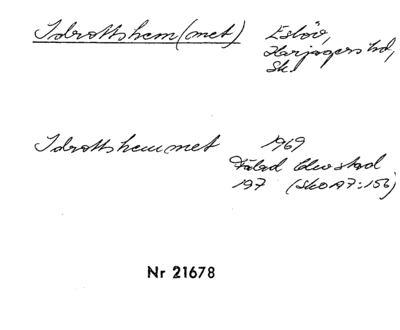 Idrottshem(met) Eslöv,
Harjagers hd,
Sk.
Idrottshemmet 1969
197 (SkO A7:156)
Nr 21678